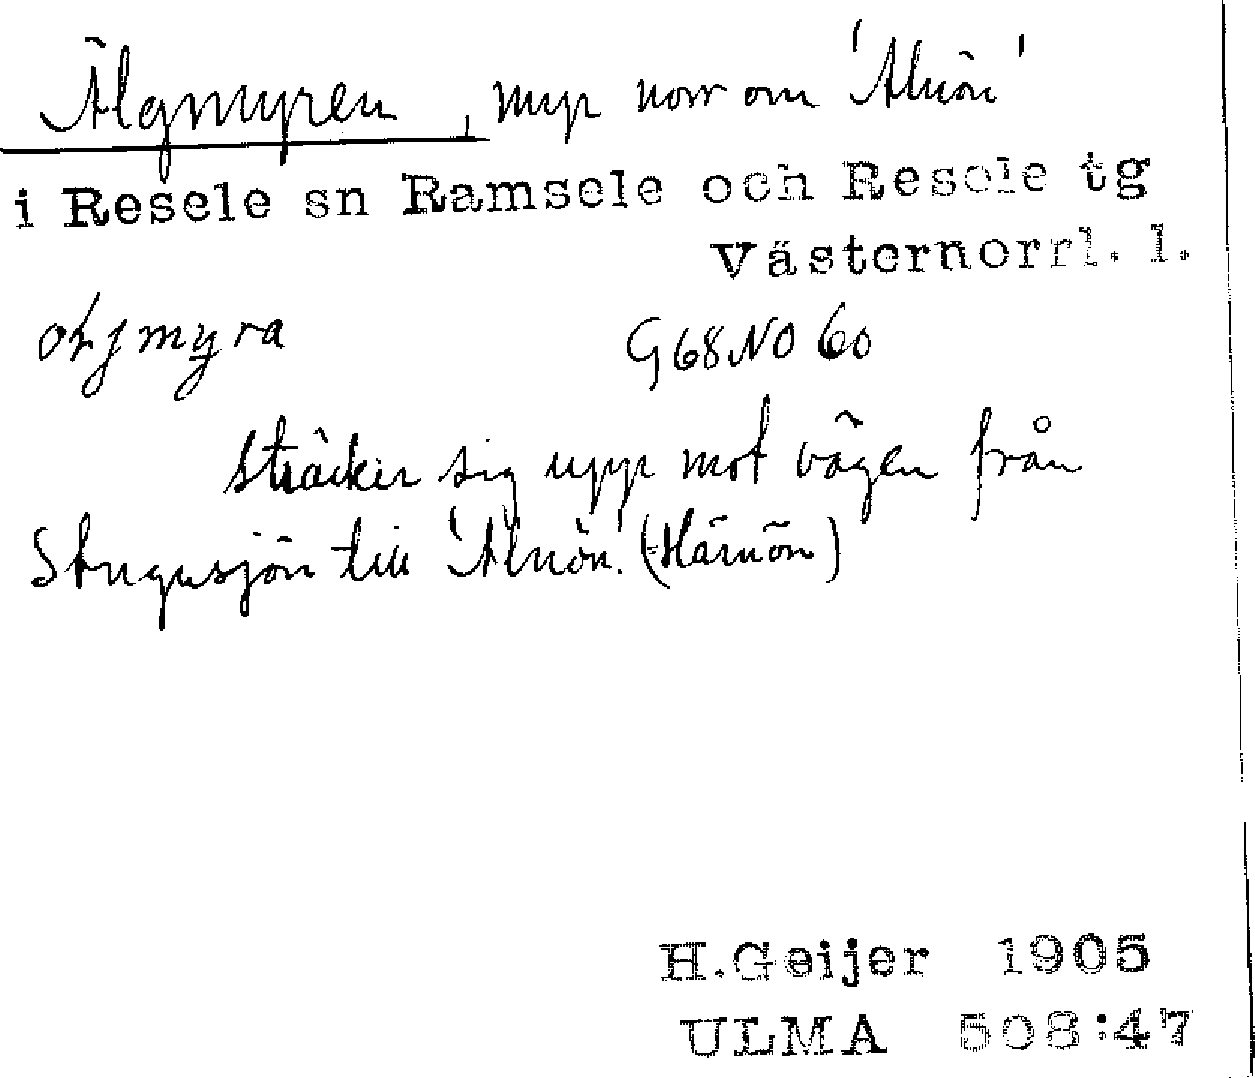 Älgmyren, myr norr om 'Alnön'
i Resele sn Ramsele och Resele tg
Västernorrl. l.
myra G68NO 60
sträcker sig upp mot vägen från
Stugusjön till 'Alnön'. (Härnön)
H.Geijer 1905
ULMA 508:47